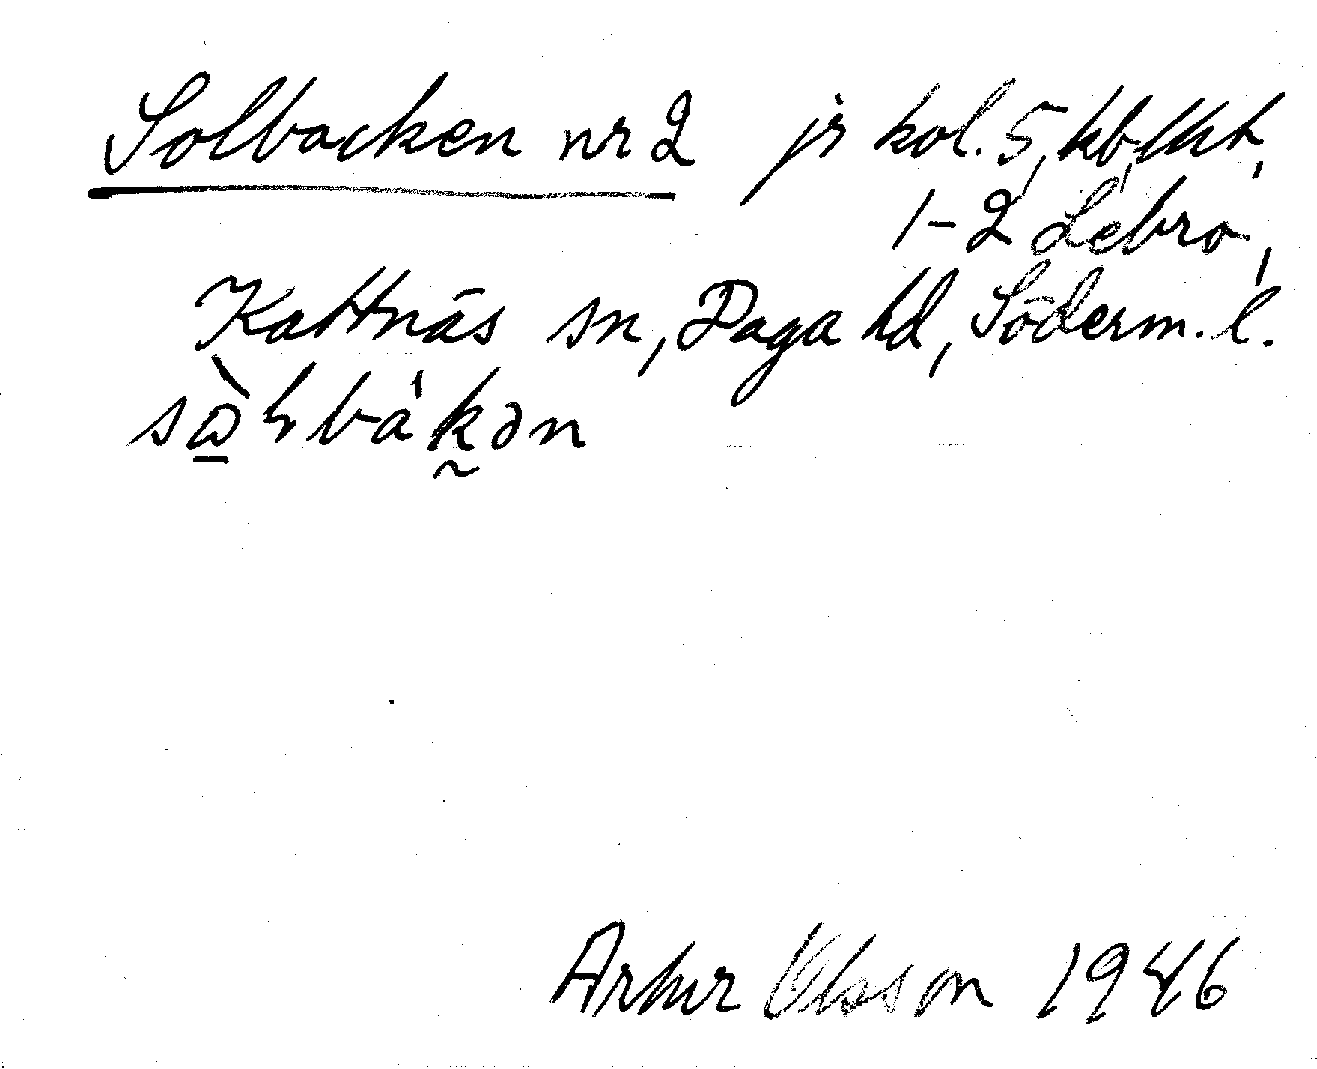 Solbacken nr 2 jr kol. 5, kb,
1-2 Lebro,
Kattnäs sn, Daga hd, Söderm. l.
Artur Olsson 1946